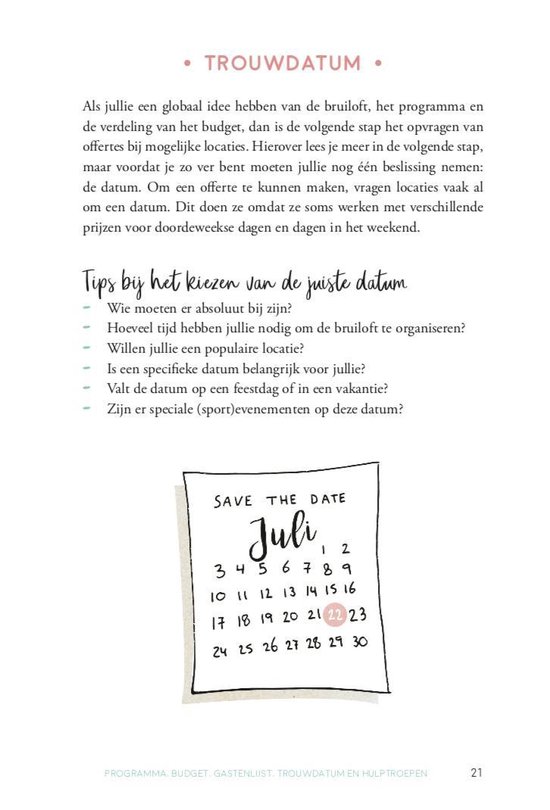 • TROUWDATUM •
Als jullie een globaal idee hebben van de bruiloft, het programma en
de verdeling van het budget, dan is de volgende stap het opvragen van
offertes bij mogelijke locaties. Hierover lees je meer in de volgende stap,
maar voordat je zo ver bent moeten jullie nog één beslissing nemen:
de datum. Om een offerte te kunnen maken, vragen locaties vaak al
om een datum. Dit doen ze omdat ze soms werken met verschillende
prijzen voor doordeweekse dagen en dagen in het weekend.
Tips bij het kiezen van de juiste datum
– Wie moeten er absoluut bij zijn?
– Hoeveel tijd hebben jullie nodig om de bruiloft te organiseren?
– Willen jullie een populaire locatie?
– Is een specifieke datum belangrijk voor jullie?
– Valt de datum op een feestdag of in een vakantie?
– Zijn er speciale (sport)evenementen op deze datum?
SAVE THE DATE
Juli
1 2
3 4 5 6 7 8 9
10 11 12 13 14 15 16
17 18 19 20 21 22 23
24 25 26 27 28 29 30
PROGRAMMA, BUDGET, GASTENLIJST, TROUWDATUM EN HULPTROEPEN 21